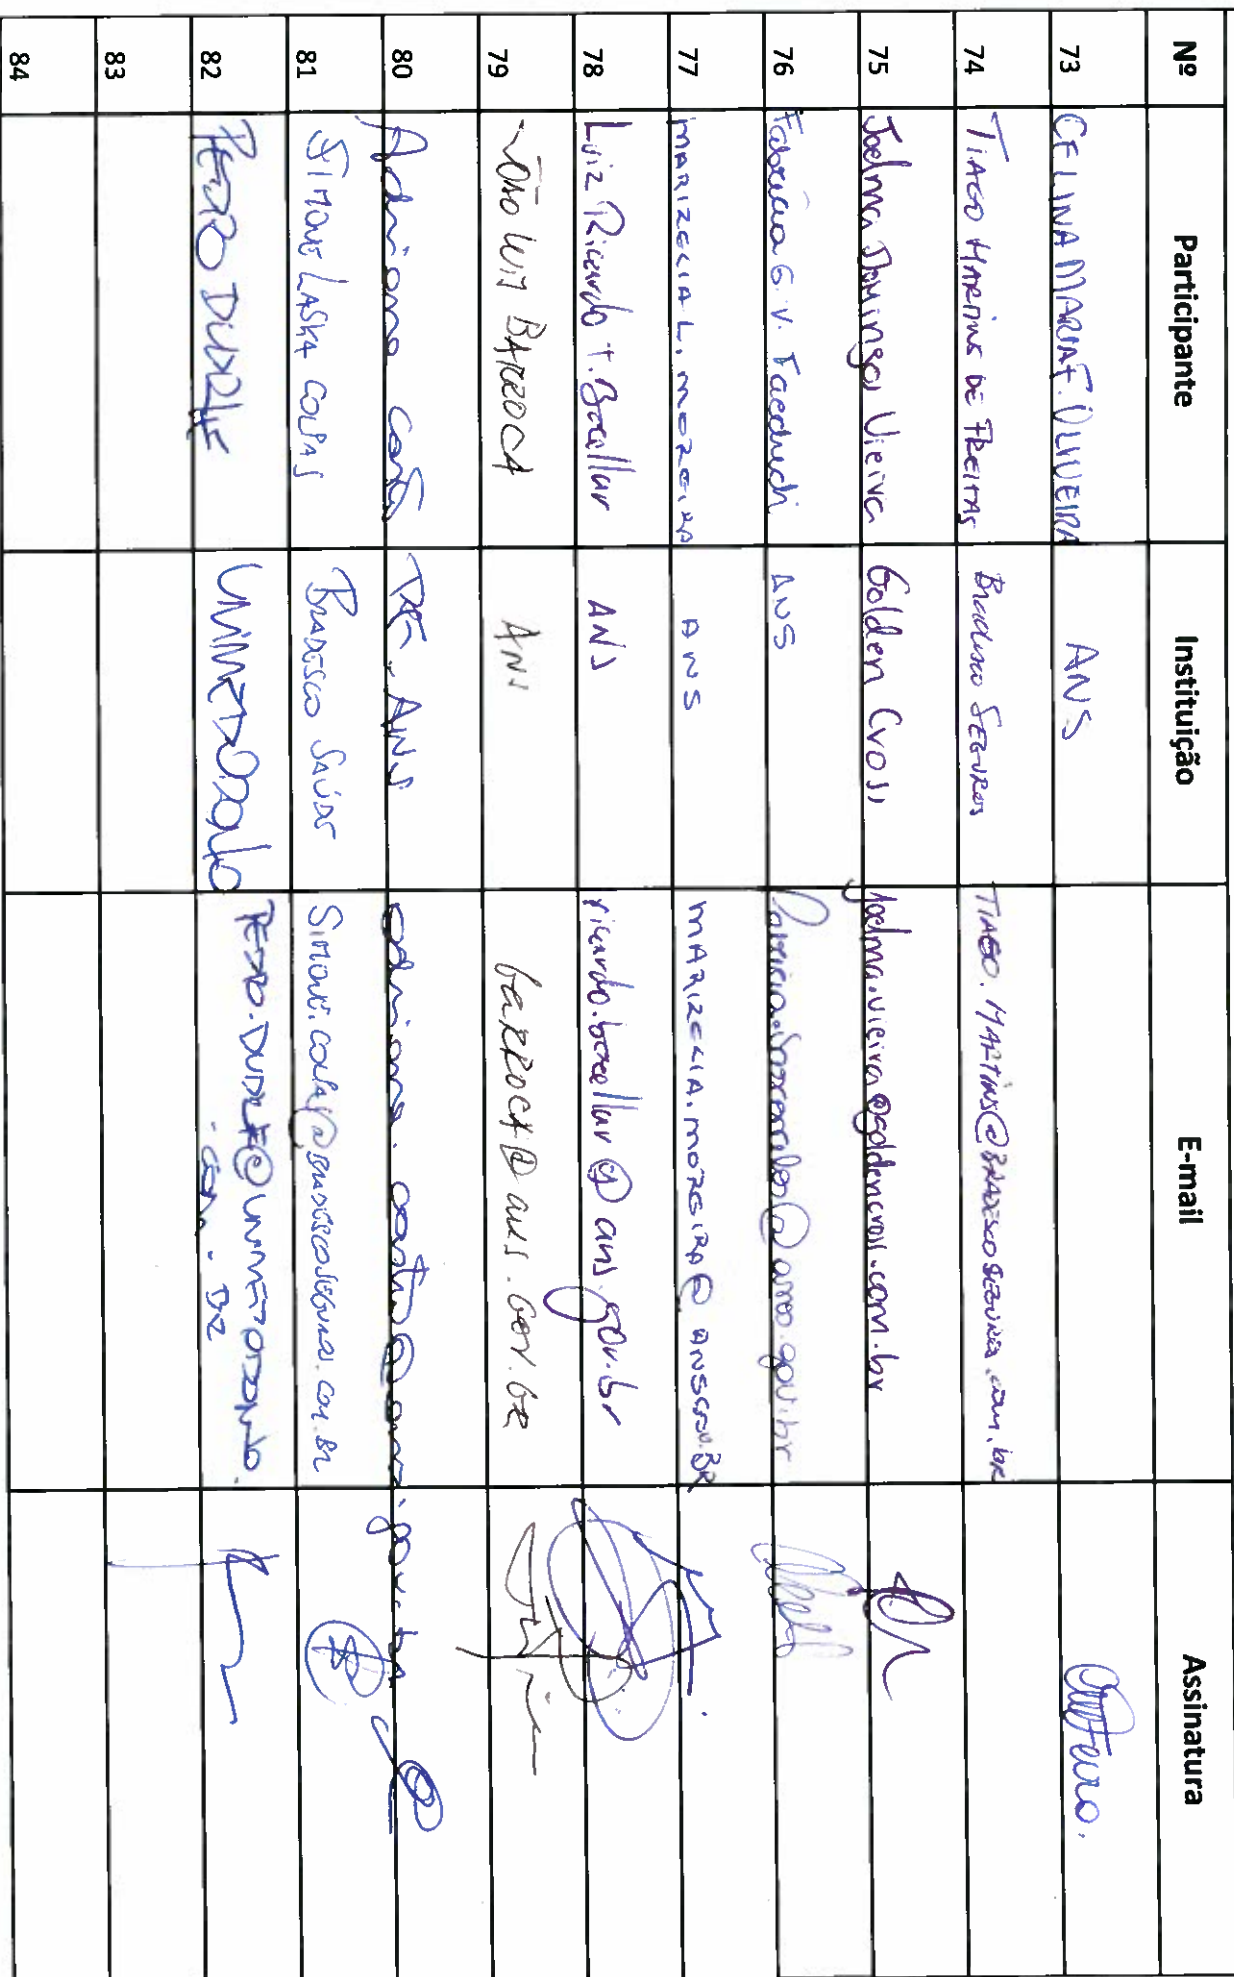 Nº Participante Instituição E-mail Assinatura
73 CELINA MARIA F. OLIVEIRA ANS
74 TIAGO MARTINS DE FREITAS Bradesco SEGUROS TIAGO.MARTINS@BRADESCOSEGUROS.com.br
75 Joelma Domingos Vieira Golden Cross joelma.vieira@goldencross.com.br
76 G. V. ANS
77 MARIZELIA L. MOREIRA ANS MARIZELIA.MOREIRA@ANS.GOV.BR
78 Luiz Ricardo T. Bacellar ANS ricardo.bacellar@ans.gov.br
79 JOÃO LUIS BARROCA ANS BARROCA@ANS.GOV.BR
80 Adriana Costa ANS adriana.costa@ans.gov.br
81 SIMONE LASKA COLPAS BRADESCO SAÚDE SIMONE.COLPAS@BRADESCOSEGUROS.COM.BR
82 PEDRO DUARTE
.COM.BR
83
84